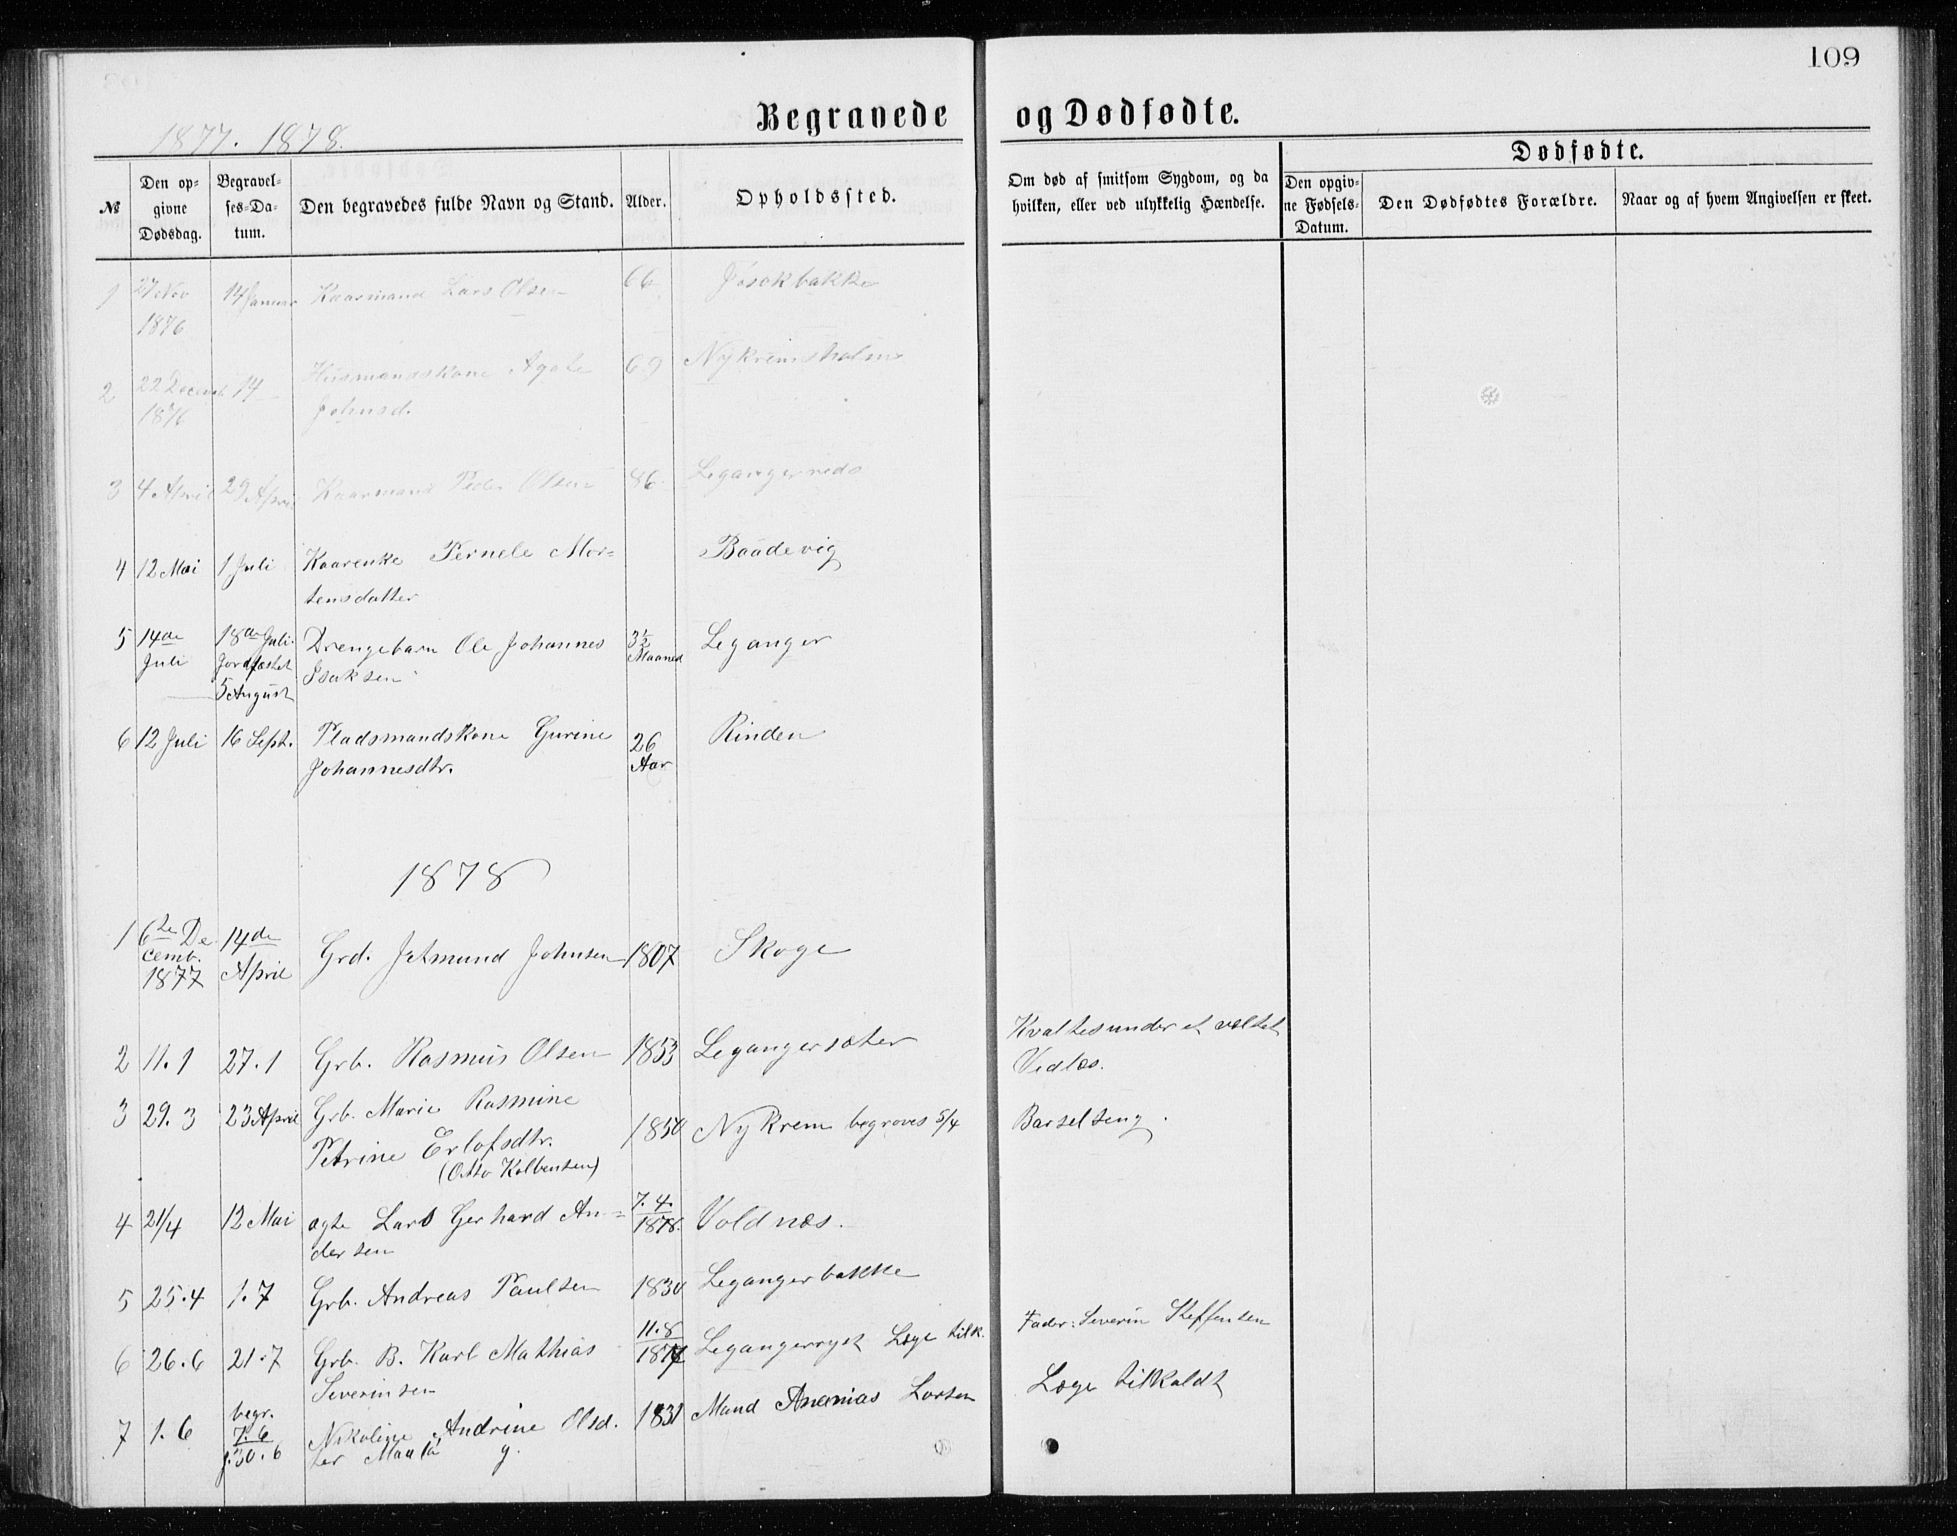 109
Begravede og Dødfødte.
1877. 1878.
Dødfødte.
№
Den op-
givne
Dødsdag.
Begravel-
ses-Da-
tum.
Den begravedes fulde Navn og Stand.
Alder.
Opholdssted.
Om død af smitsom Sygdom, og da
hvilken, eller ved ulykkelig Hændelse.
Den opgiv-
ne Fødsels-
Datum.
Den Dødfødtes Forældre.
Naar og af hvem Angivelsen er skeet.
1 27 Nov 14 Januar Kaarmand Lars Olsen 66
1876
2 22 Decemb 14 Huusmandskone Agate 69 Nykremsholm
1876 Johnsd.
3 4 April 29 April Kaarmand Peder Olsen 86
4 12 Mai 1 Juli Kaarenke Pernele Mor= Baadevig
tensdatter
5 14de 18de Juli. Drengebarn Ole Johannes 3½ Leganger
Juli Jordfæstet Isaksen Maaned
5 August
6 12 Juli 16 Sept. Pladsmandskone Gurine 26 Rinden
Johannesdtr. Aar
1878
1 6te De 14de Grd. Jetmund Johnsen 1807 Skoge
cemb. April
1877
2 11.1 27.1 Grb. Rasmus Olsen 1853 Legangersæter Kvaltes under et væltet
Vedlæs.
3 29.3 23 April Grb. Marie Rasmine 1850 Nykrem begraves 5/4 Barselseng.
Petrine Erlofsdtr.
(Otto Kolbensen)
4 21/4 12 Mai ægte Lars Gerhard An= 7.4. 1878. Voldnæs.
dersen
5 25.4 1.7 Grb. Andreas Paulsen 1830 Legangerbakke
6 26.6 21.7 Grb. B. Karl Mathias 11.8 1874 Legangerryst Læge tilk. Fader: Severin Steffensen
Severinsen
7 1.6 begr. 7.6 Nikoline Andrine Olsd. 1831 Mand Ananias Larsen Læge tilkaldt
j.30.6